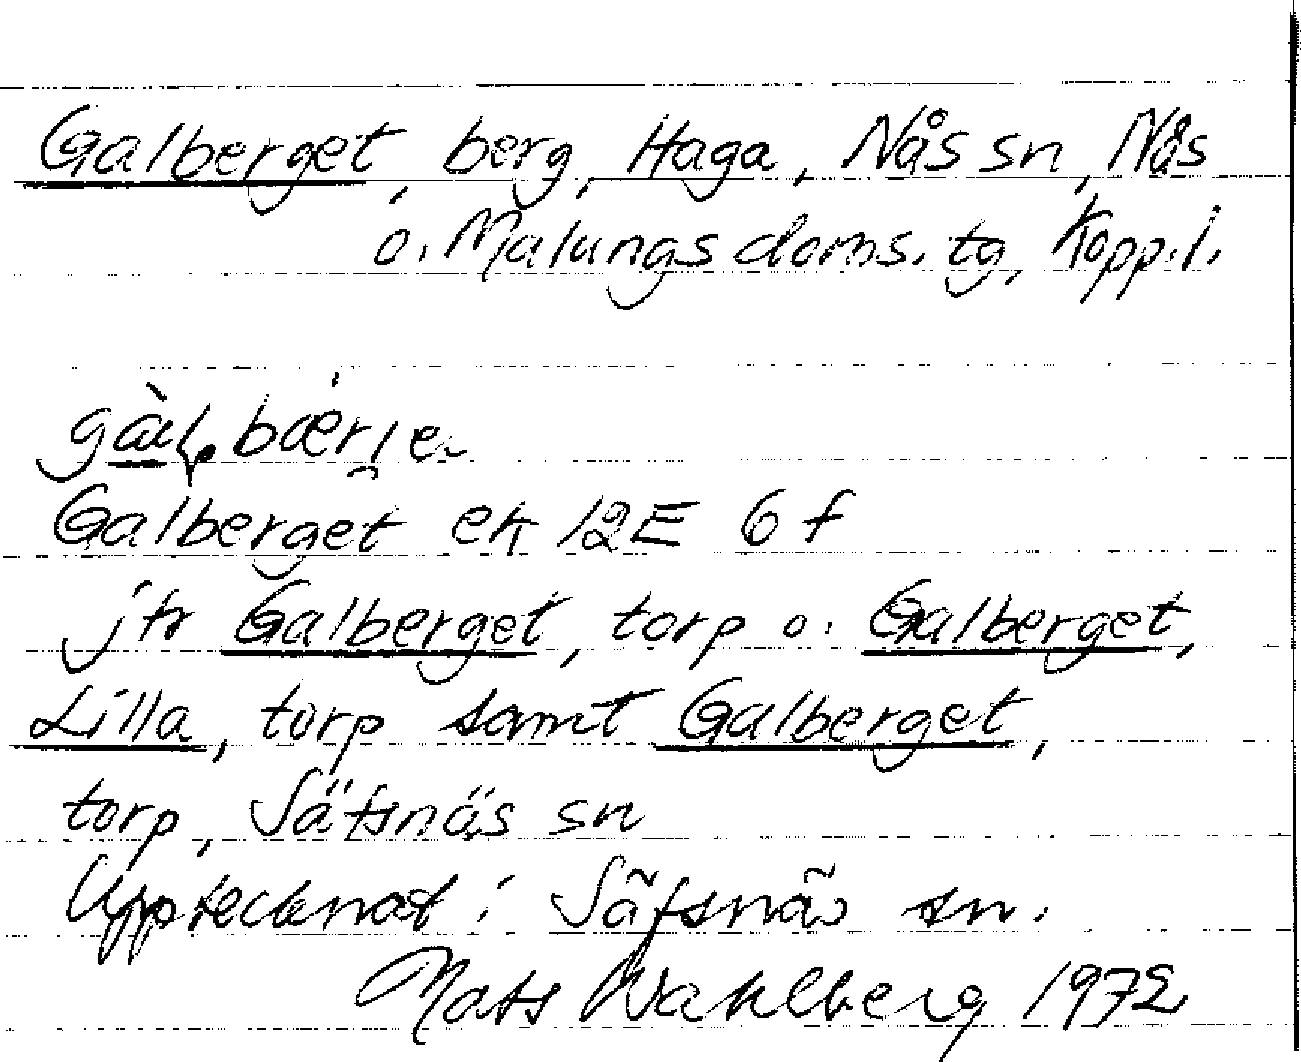 Galberget, berg, Haga, Nås sn, Nås
o. Malungs doms. tg, Kopp. l.
Galberget ek 12E 6 f
jfr Galberget, torp o. Galberget,
Lilla, torp samt Galberget,
torp, Säfsnäs sn
Upptecknat i Säfsnäs sn.
Mats Wahlberg 1972